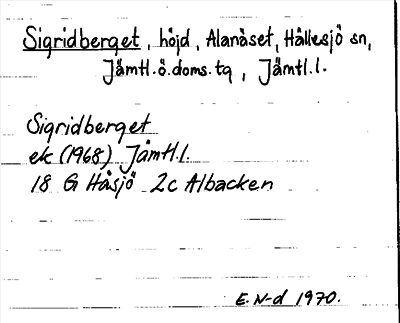 Sigridberget, höjd, Alanäset, Hällesjö sn,
Jämtl.ö.doms.tg, Jämtl.l.
Sigridberget
ek (1968) Jämtl.l.
18 G Håsjö 2c Albacken
E. N-d 1970.